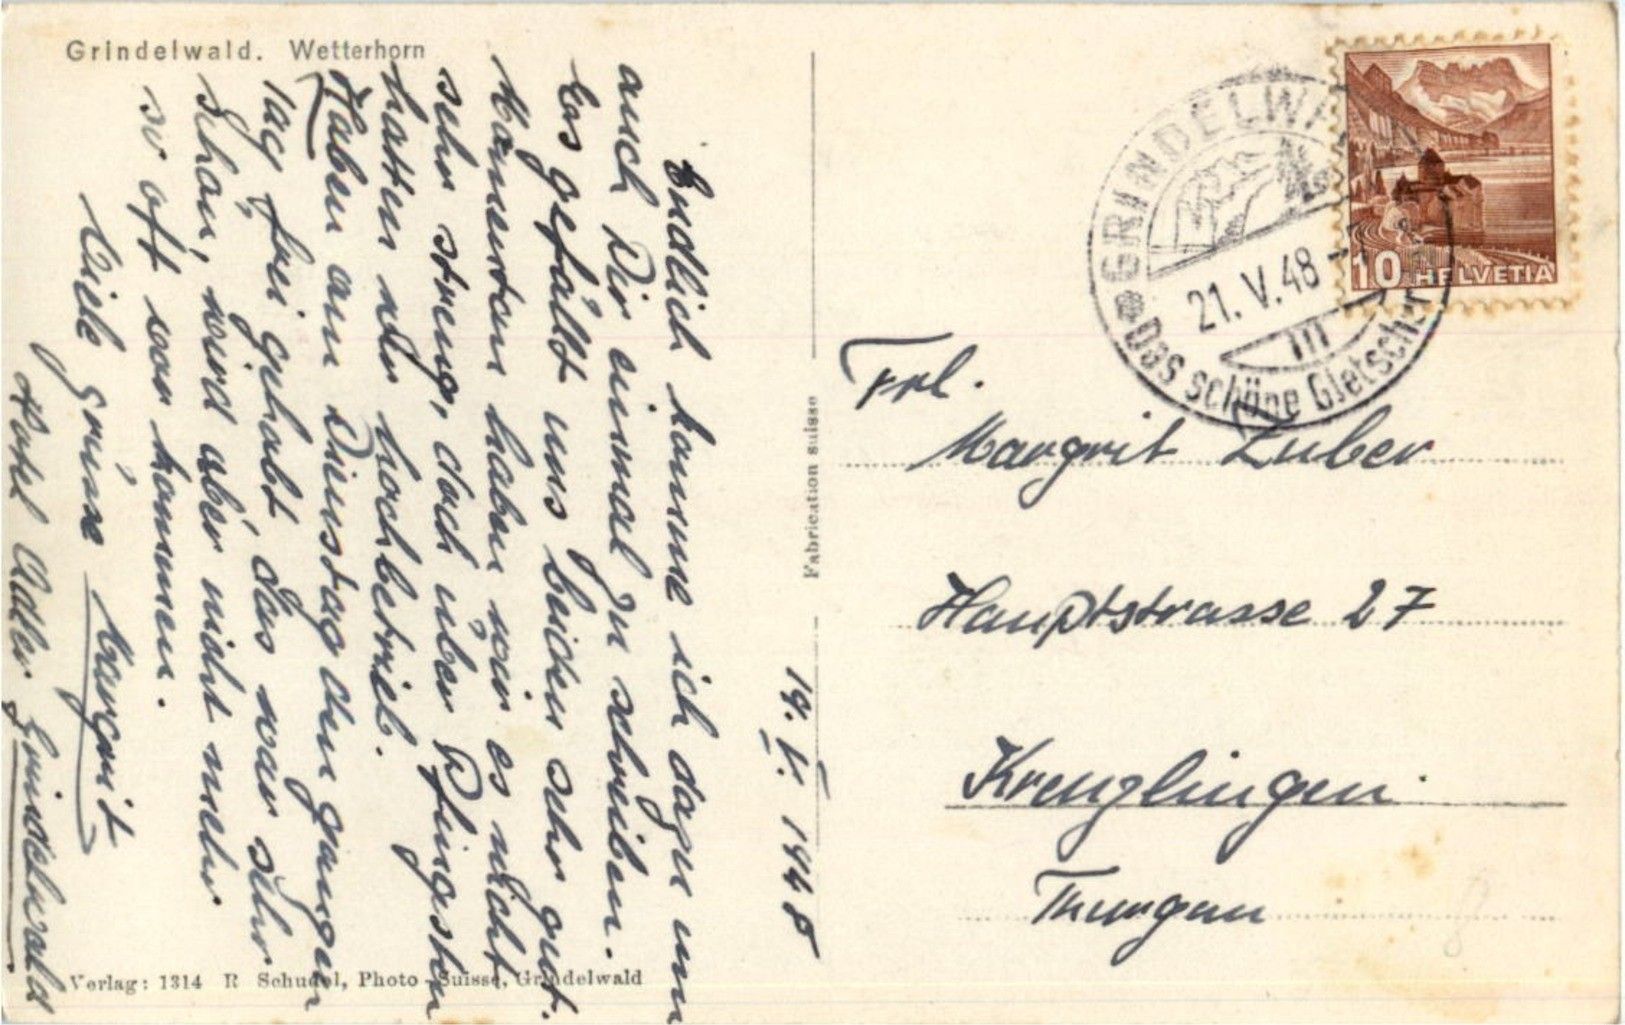 Grindelwald. Wetterhorn
19. V. 1948
Endlich komme ich dazu um
auch Dir einmal zu schreiben.
Es gefällt uns beiden sehr gut.
Momentan haben wir es nicht
sehr streng, doch über Pfingsten
hatten wir hochbetrieb.
Haben am Dienstag den ganzen
Tag frei gehabt, das war sehr
schön, wird aber nicht mehr
so oft vor kommen.
Viele Grüsse Margrit
Hotel Adler. Grindelwald
Verlag: 1314 R Schudel, Photo-Suisse, Grindelwald
Fabrication suisse
GRINDELWALD
21. V. 48
Das schöne Gletscher
10 HELVETIA
Frl.
Margrit Zuber
Hauptstrasse 27
Kreuzlingen.
Thurgau
8